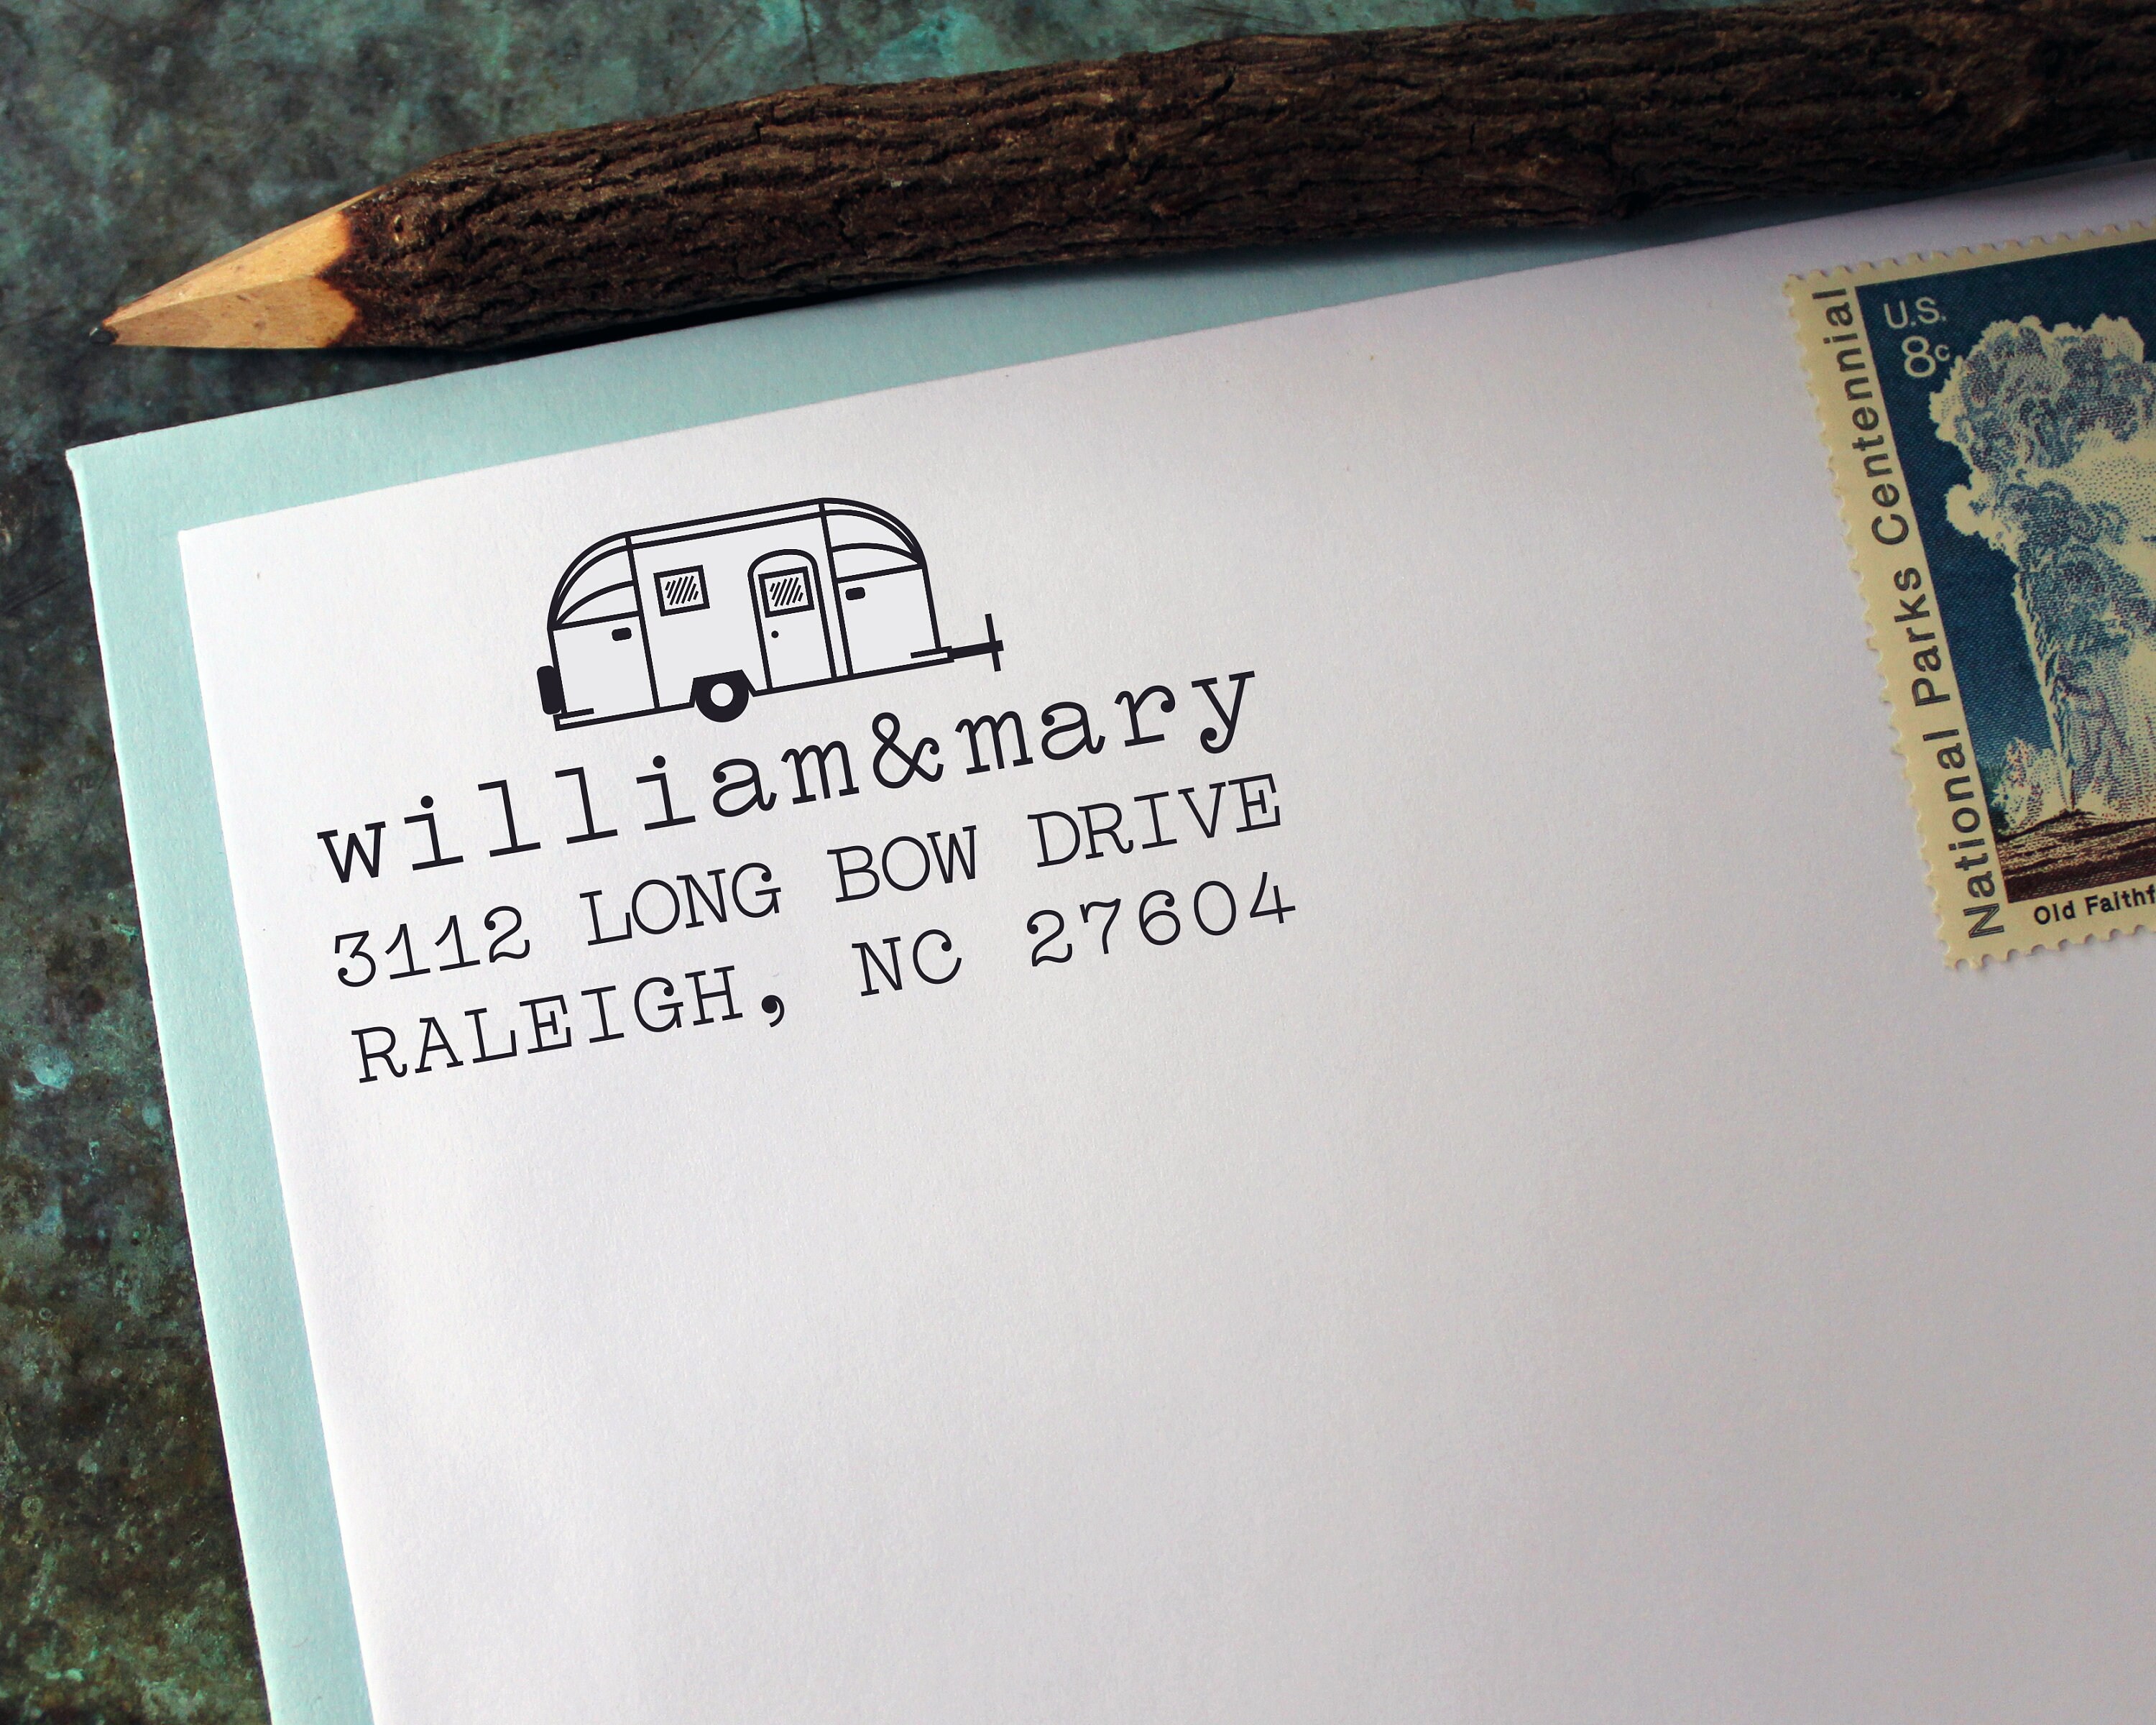 william&mary
3112 LONG BOW DRIVE
RALEIGH, NC 27604
National Parks Centennial
U.S.
8c
Old